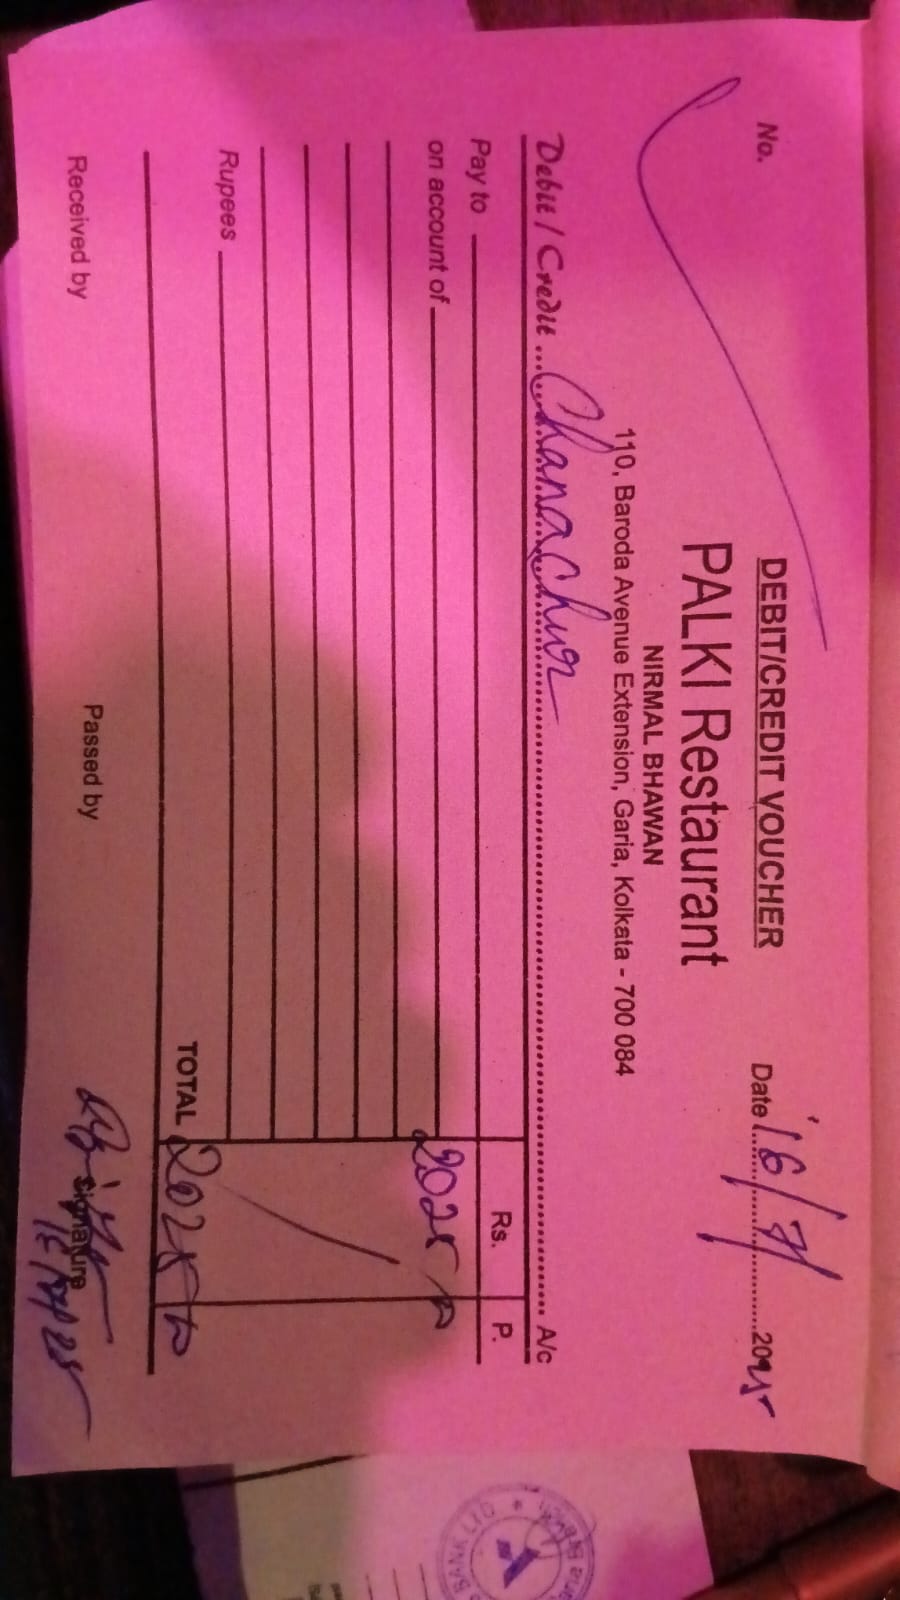 No.
DEBIT/CREDIT VOUCHER
Date 16/7/ 2025
PALKI Restaurant
NIRMAL BHAWAN
110, Baroda Avenue Extension, Garia, Kolkata - 700 084
Debit / Credit ... Chanachur ... A/c
Rs. P.
Pay to
on account of 2025
Rupees
TOTAL 2025
Received by
Passed by
Signature
BANK LTD